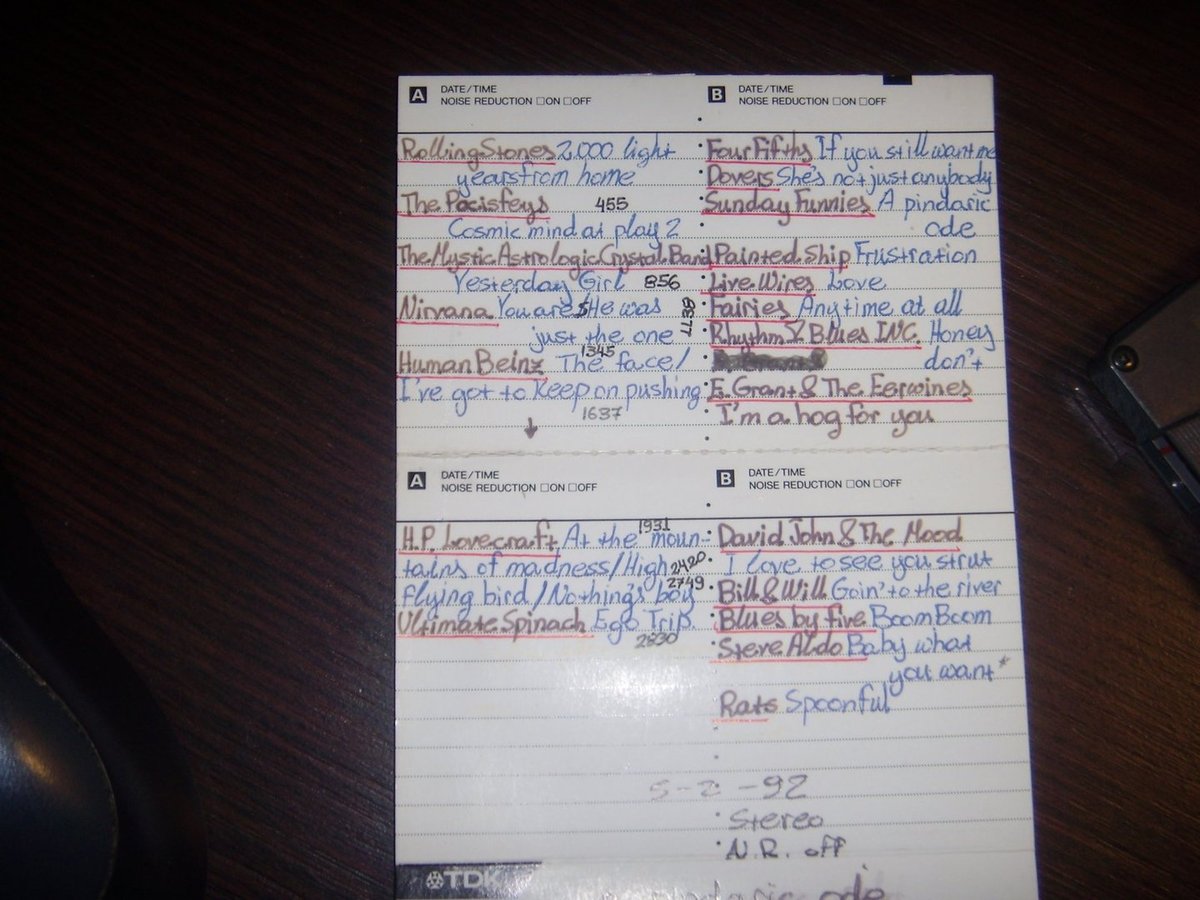 A DATE/TIME
NOISE REDUCTION □ON □OFF
Rolling Stones 2,000 light
years from home
The Pacisteys 455
Cosmic mind at play 2
The Mystic Astrologic Crystal Band
Yesterday Girl 856
Nirvana You are $ He was
just the one 1138
1345
Human Beinz The face/
I've got to Keep on pushing
1637
B DATE/TIME
NOISE REDUCTION □ON □OFF
Four Fifths If you still want me
Dovers She's not just anybody
Sunday Funnies A pindaric
ode
Painted Ship Frustration
Live Wires Love
Fairies Anytime at all
Rhythm & Blues INC. Honey
don't
E. Grant & The Eerwines
I'm a hog for you
A DATE/TIME
NOISE REDUCTION □ON □OFF
1931
H.P. Lovecraft At the moun-
tains of madness/High 2420
2749
flying bird/Nothing's boy
Ultimate Spinach Ego Trip
2830
B DATE/TIME
NOISE REDUCTION □ON □OFF
David John & The Mood
I love to see you strut
Bill & Will Goin' to the river
Blues by five Boom Boom
Steve Aldo Baby what
you want*
Rats Spoonful
5-2-92
Stereo
N.R. off
TDK
pindaric ode